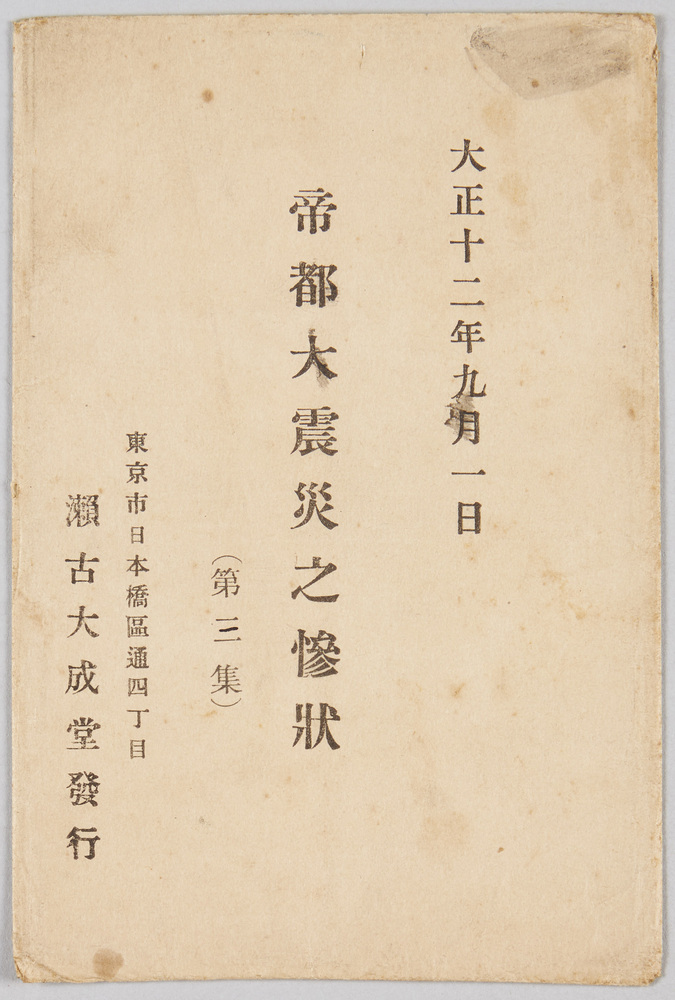 大正十二年九月一日
帝都大震災之慘狀
（第三集）
東京市日本橋區通四丁目
瀨古大成堂發行